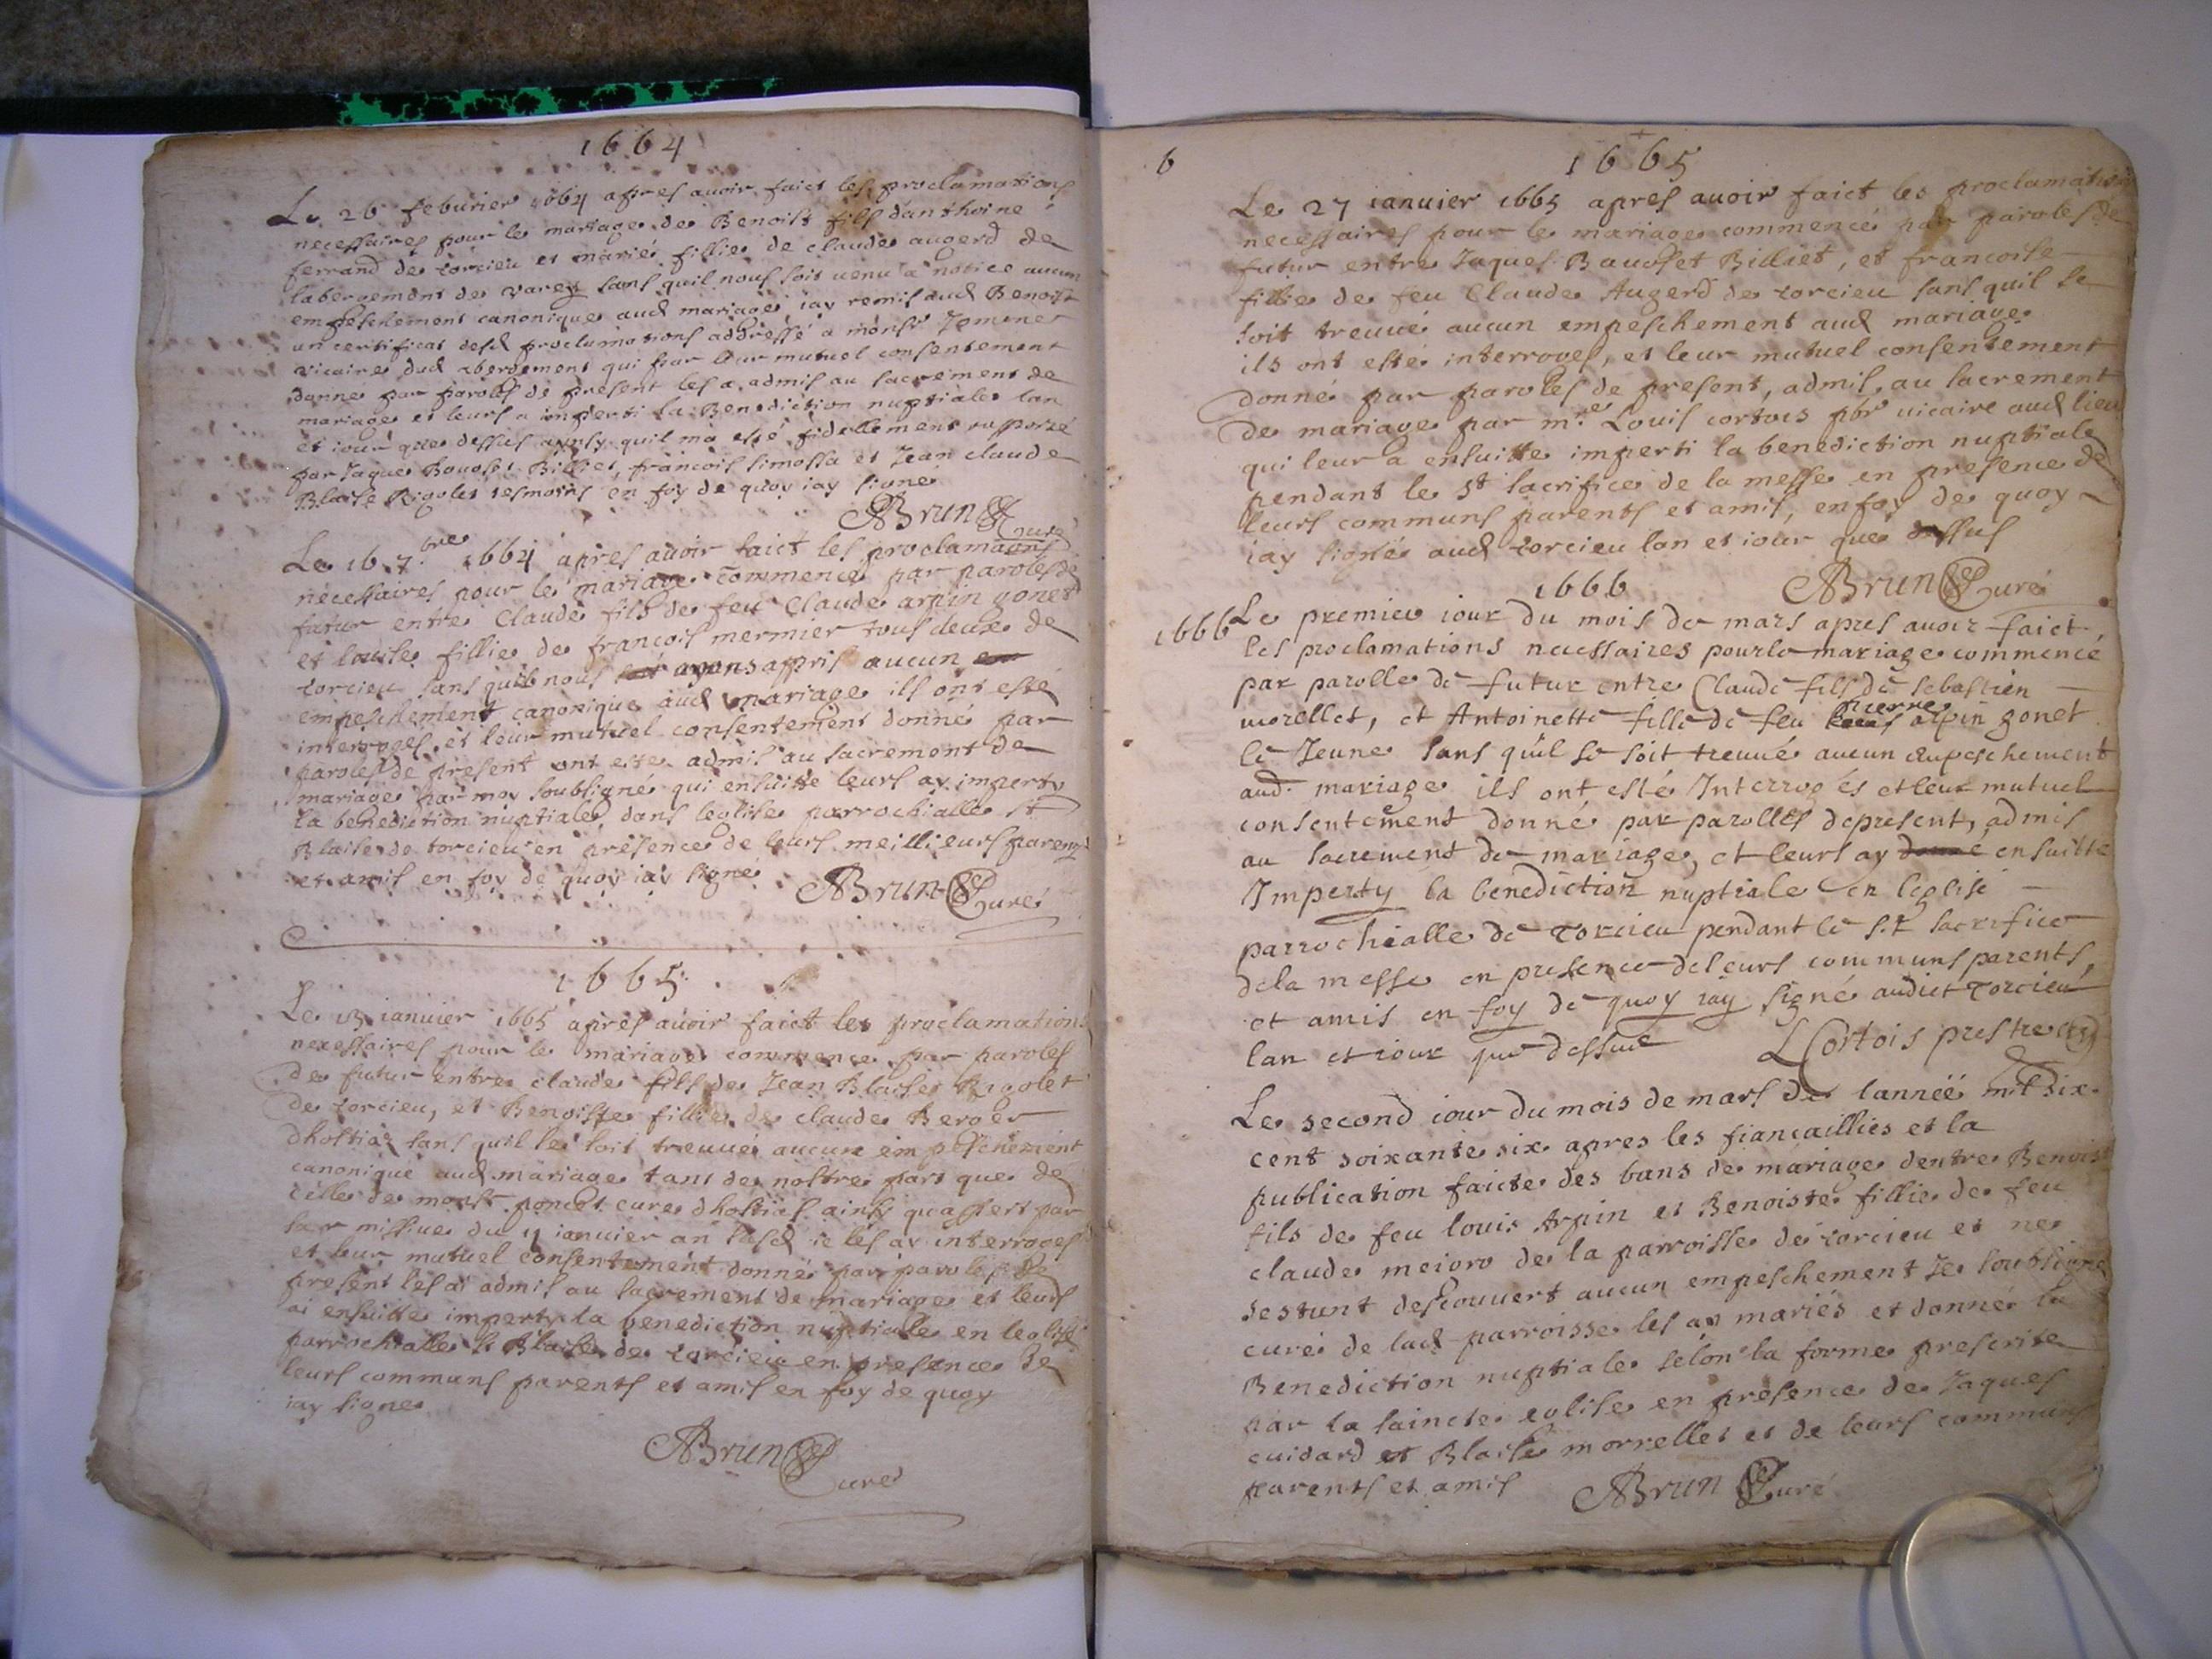 1664
Le 26 feburier 1664 apres auoir faict les proclamations
necessaires pour le mariage de Benoist fils danthoine
ferrand de torcieu et marie fillie de claude augerd de
labergement de varey sans quil nous soit uenu a notice aucun
empeschement canonique aud mariage iay remis aud Benoist
un certificat desd proclamations addressé a monsr
vicaire dud abergement qui par leur mutuel consentement
donne par paroles de present les a admis au sacrement de
mariage et leurs a imperti la Benediction nuptiale lan
et iour que dessus ainsy quil ma esté fidellement rapporté
par Jaque Billiet, francois simossa et Jean claude
Blaise Rigolet tesmoins en foy de quoy iay signe
ABrun Curé
Le 16 7.bre 1664 apres auoir faict les proclamaons
necessaires pour le mariage commence par paroles de
futur entre Claude fils de feu Claude arpin gonet
et louise fillie de francois mermier tous deux de
torcieu sans quil nous ayons appris aucun
empeschement canonique aud mariage ils ont esté
interroges, et leur mutuel consentement donné par
paroles de present ont este admis au sacrement de
mariage par moy soubsigné qui ensuitte leurs ay imperty
la benediction nuptiale, dans leglise parrochialle st
Blaise de torcieu en presence de leurs meillieurs parents
et amis en foy de quoy iay signé
ABrun Curé
1665
Le 13 ianuier 1665 apres auoir faict les proclamations
necessaires pour le mariage commence par paroles
de futur entre claude fils de Jean Blaise Rigolet
de torcieu, et Benoiste fillie de claude Berger
dhostiaz sans quil se soit treuué aucun empeschement
canonique aud mariage tant de nostre part que de
celle de monsr poncet cure dhostias ainsy quappert par
sa missiue du 11 ianuier an susd ie les ay interroges
et leur mutuel consentement donné par paroles de
present les ai admis au sacrement de mariage et leurs
ai ensuitte imperty la benediction nuptiale en leglise
parrochialle st Blaise de torcieu en presence de
leurs communs parents et amis en foy de quoy
iay signe
ABrun Cure
6
1665
Le 27 ianuier 1665 apres auoir faict les proclamations
necessaires pour le mariage commencé par paroles de
futur entre Jaques Billiet, et francoise
fillie de feu Claude Augerd de torcieu sans quil se
soit treuué aucun empeschement aud mariage
ils ont esté interroges, et leur mutuel consentement
donné par paroles de present, admis au sacrement
de mariage par m.re Louis cortois pbr uicaire aud lieu
qui leur a ensuitte imperti la benediction nuptiale
pendant le st sacrifice de la messe en presence de
leurs communs parents et amis, en foy de quoy
iay signé aud torcieu lan et iour que dessus
1666 ABrun Curé
1666 Le premier iour du mois de mars apres auoir faict
les proclamations necessaires pour le mariage commencé
par parolle de futur entre Claude fils de sebastien
morellet, et Antoinette fille de feu pierre arpin gonet
le Jeune sans quil se soit treuué aucun empeschement
aud. mariage ils ont esté Interrogés et leur mutuel
consentement donné par parolles de present, admis
au sacrement de mariage, et leurs ay donné ensuitte
Imperty la benediction nuptiale en leglise
parrochialle de Torcieu pendant le s.t sacrifice
de la messe en presence de leurs communs parents,
et amis en foy de quoy iay signé audict Torcieu
lan et iour que dessus LCortois prestre
Le second iour du mois de mars de lannéé mil six
cent soixante six apres les fiancaillies et la
publication faicte des bans de mariage dentre Benoist
fils de feu louis Arpin et Benoiste fillie de feu
claude de la parroisse de torcieu et ne
sestant descouuert aucun empeschement Je soubsigné
curé de lad parroisse les ay mariés et donné la
Benediction nuptiale selon la forme prescrite
par la saincte eglise en presence de Jaques
cuidard et Blaise morrellet et de leurs communs
parents et amis ABrun Curé